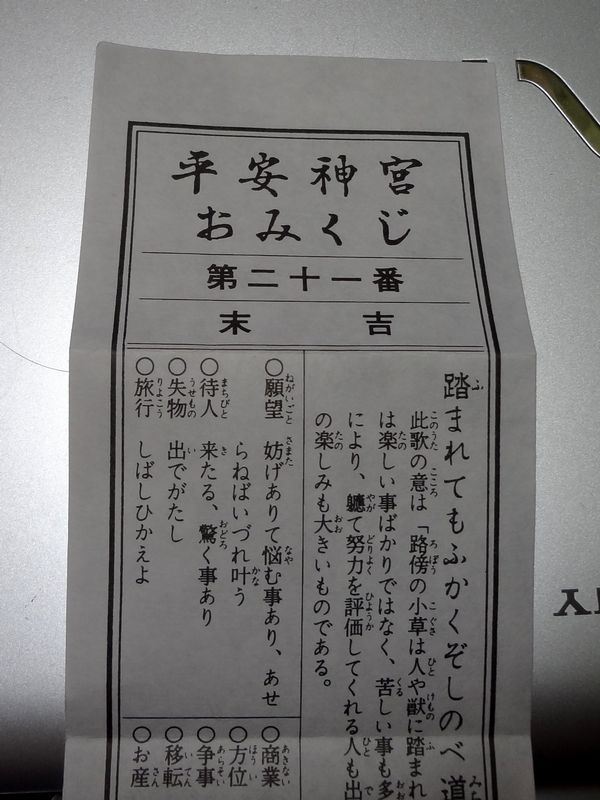 平安神宮
おみくじ
第二十一番
末吉
踏まれてもふかくぞしのべ道
此歌の意は「路傍の小草は人や獣に踏まれ
は楽しい事ばかりではなく、苦しい事も多
により、軈て努力を評価してくれる人も出
の楽しみも大きいものである。
○願望 妨げありて悩む事あり、あせ
らねばいづれ叶う
○待人 来たる、驚く事あり
○失物 出でがたし
○旅行 しばしひかえよ
○商業
○方位
○争事
○移転
○お産